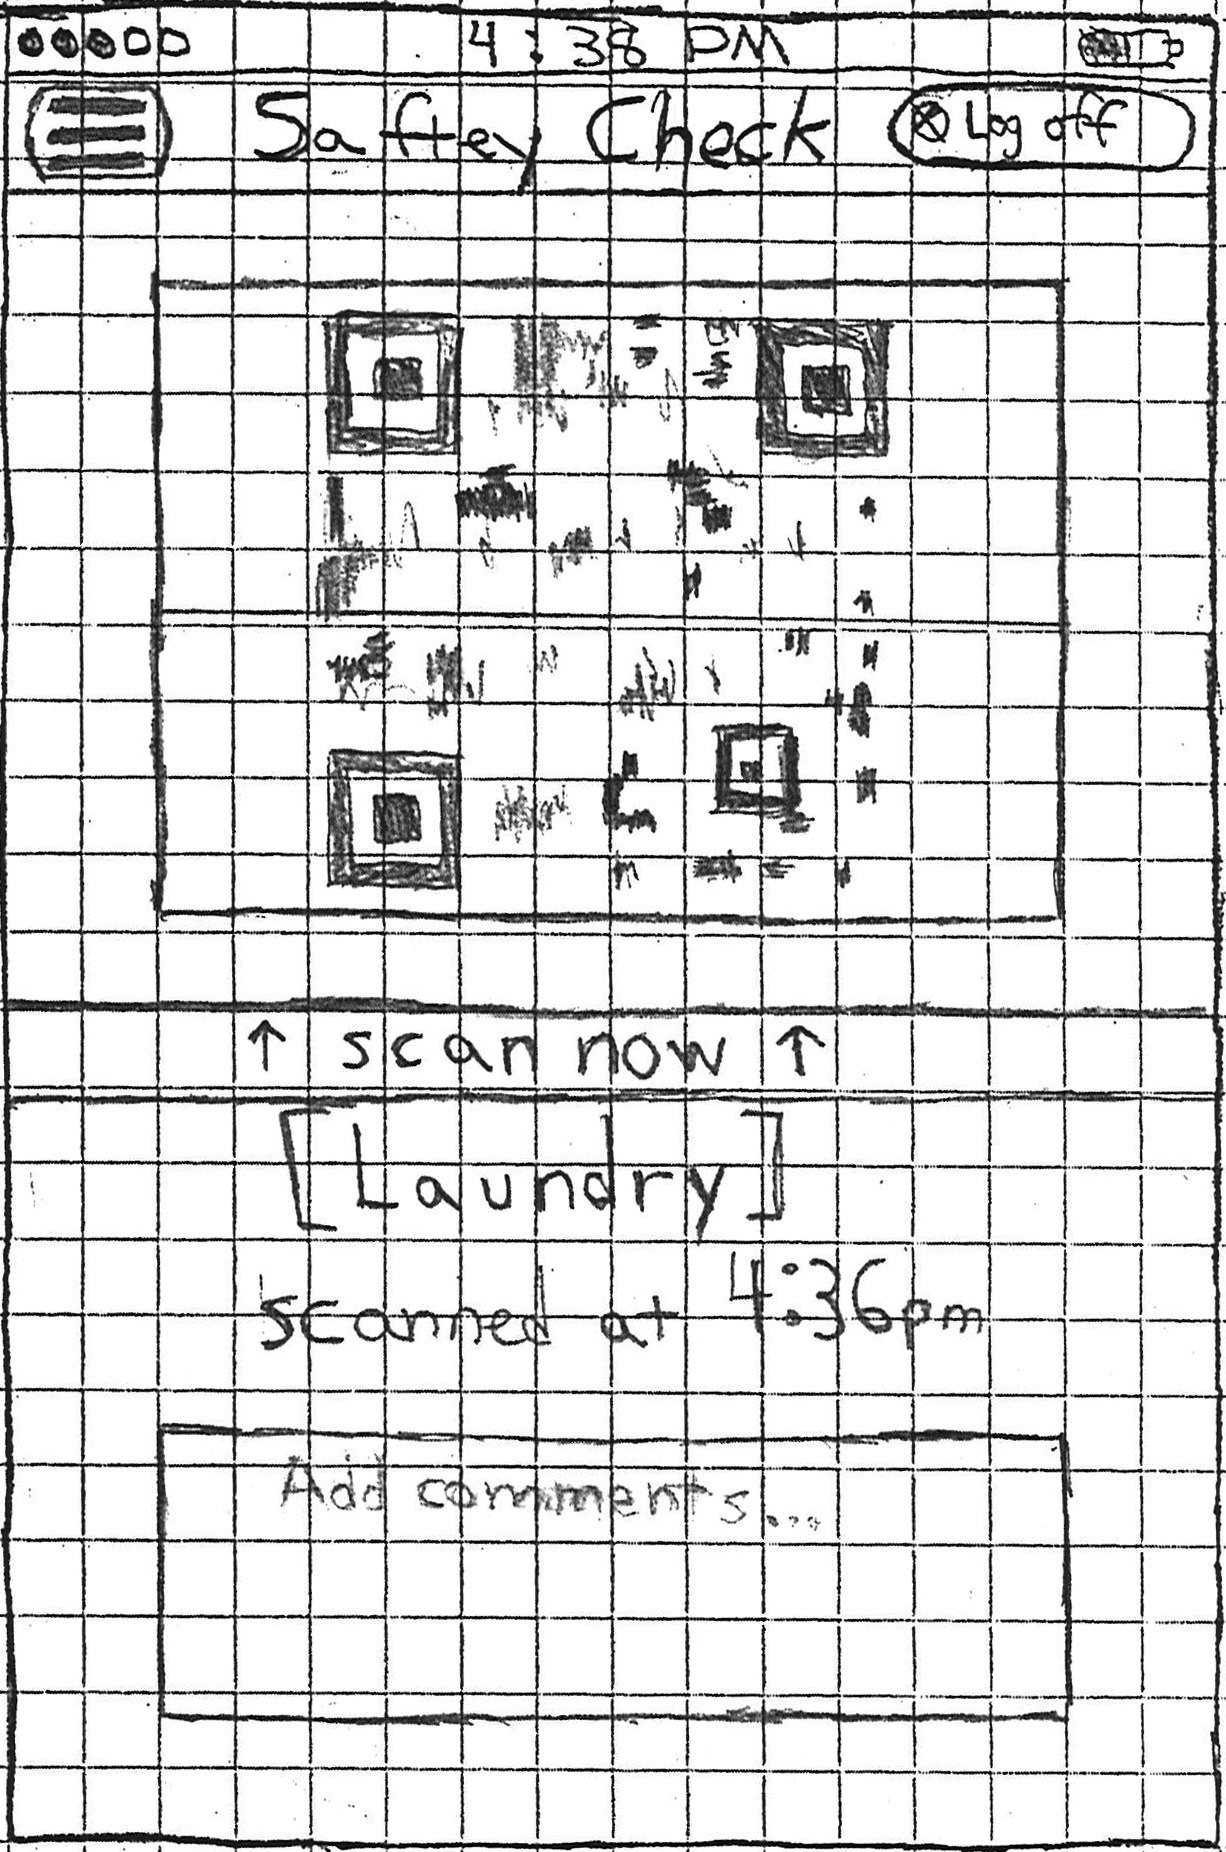 4:38 PM
Saftey Check
Log off
↑ scan now ↑
[Laundry]
scanned at 4:36pm
Add comments...